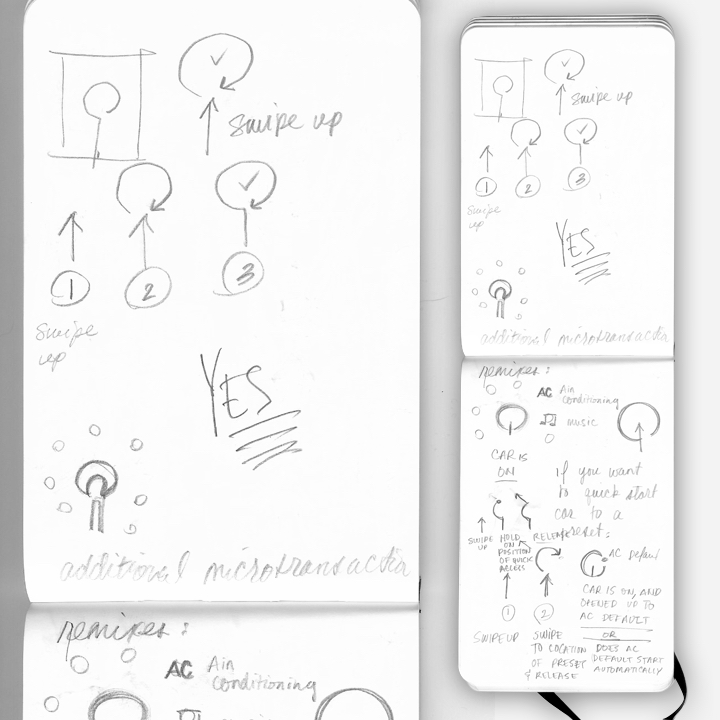 swipe up
1
2
3
swipe
up
YES
additional microtransactio
remixes:
AC Air
conditioning
swipe up
1
2
3
swipe
up
YES
additional microtransactio
remixes:
AC Air
conditioning
music
CAR IS
ON
if you want
to quick start
car to a
preset:
SWIPE
UP
HOLD
ON
POSITION
OF QUICK
ACCESS
RELEASE
AC Default
1
2
SWIPE UP
SWIPE
TO LOCATION
OF PRESET
& RELEASE
CAR IS ON, AND
OPENED UP TO
AC DEFAULT
OR
DOES AC
DEFAULT START
AUTOMATICALLY